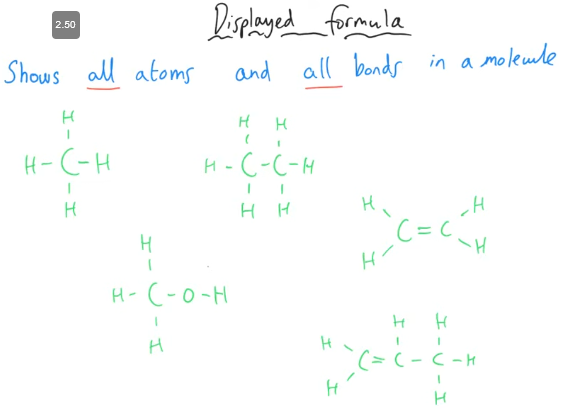 2.50
Displayed formula
Shows all atoms and all bonds in a molecule
H
H-C-H
H
H H
H-C-C-H
H H
H H
C=C
H H
H
H-C-O-H
H
H H
H
C=C-C-H
H
H